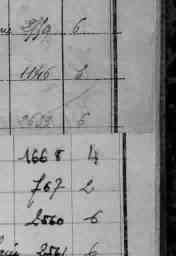 6
1146 2
2652 6
1668 4
767 2
2560 6
2561 6